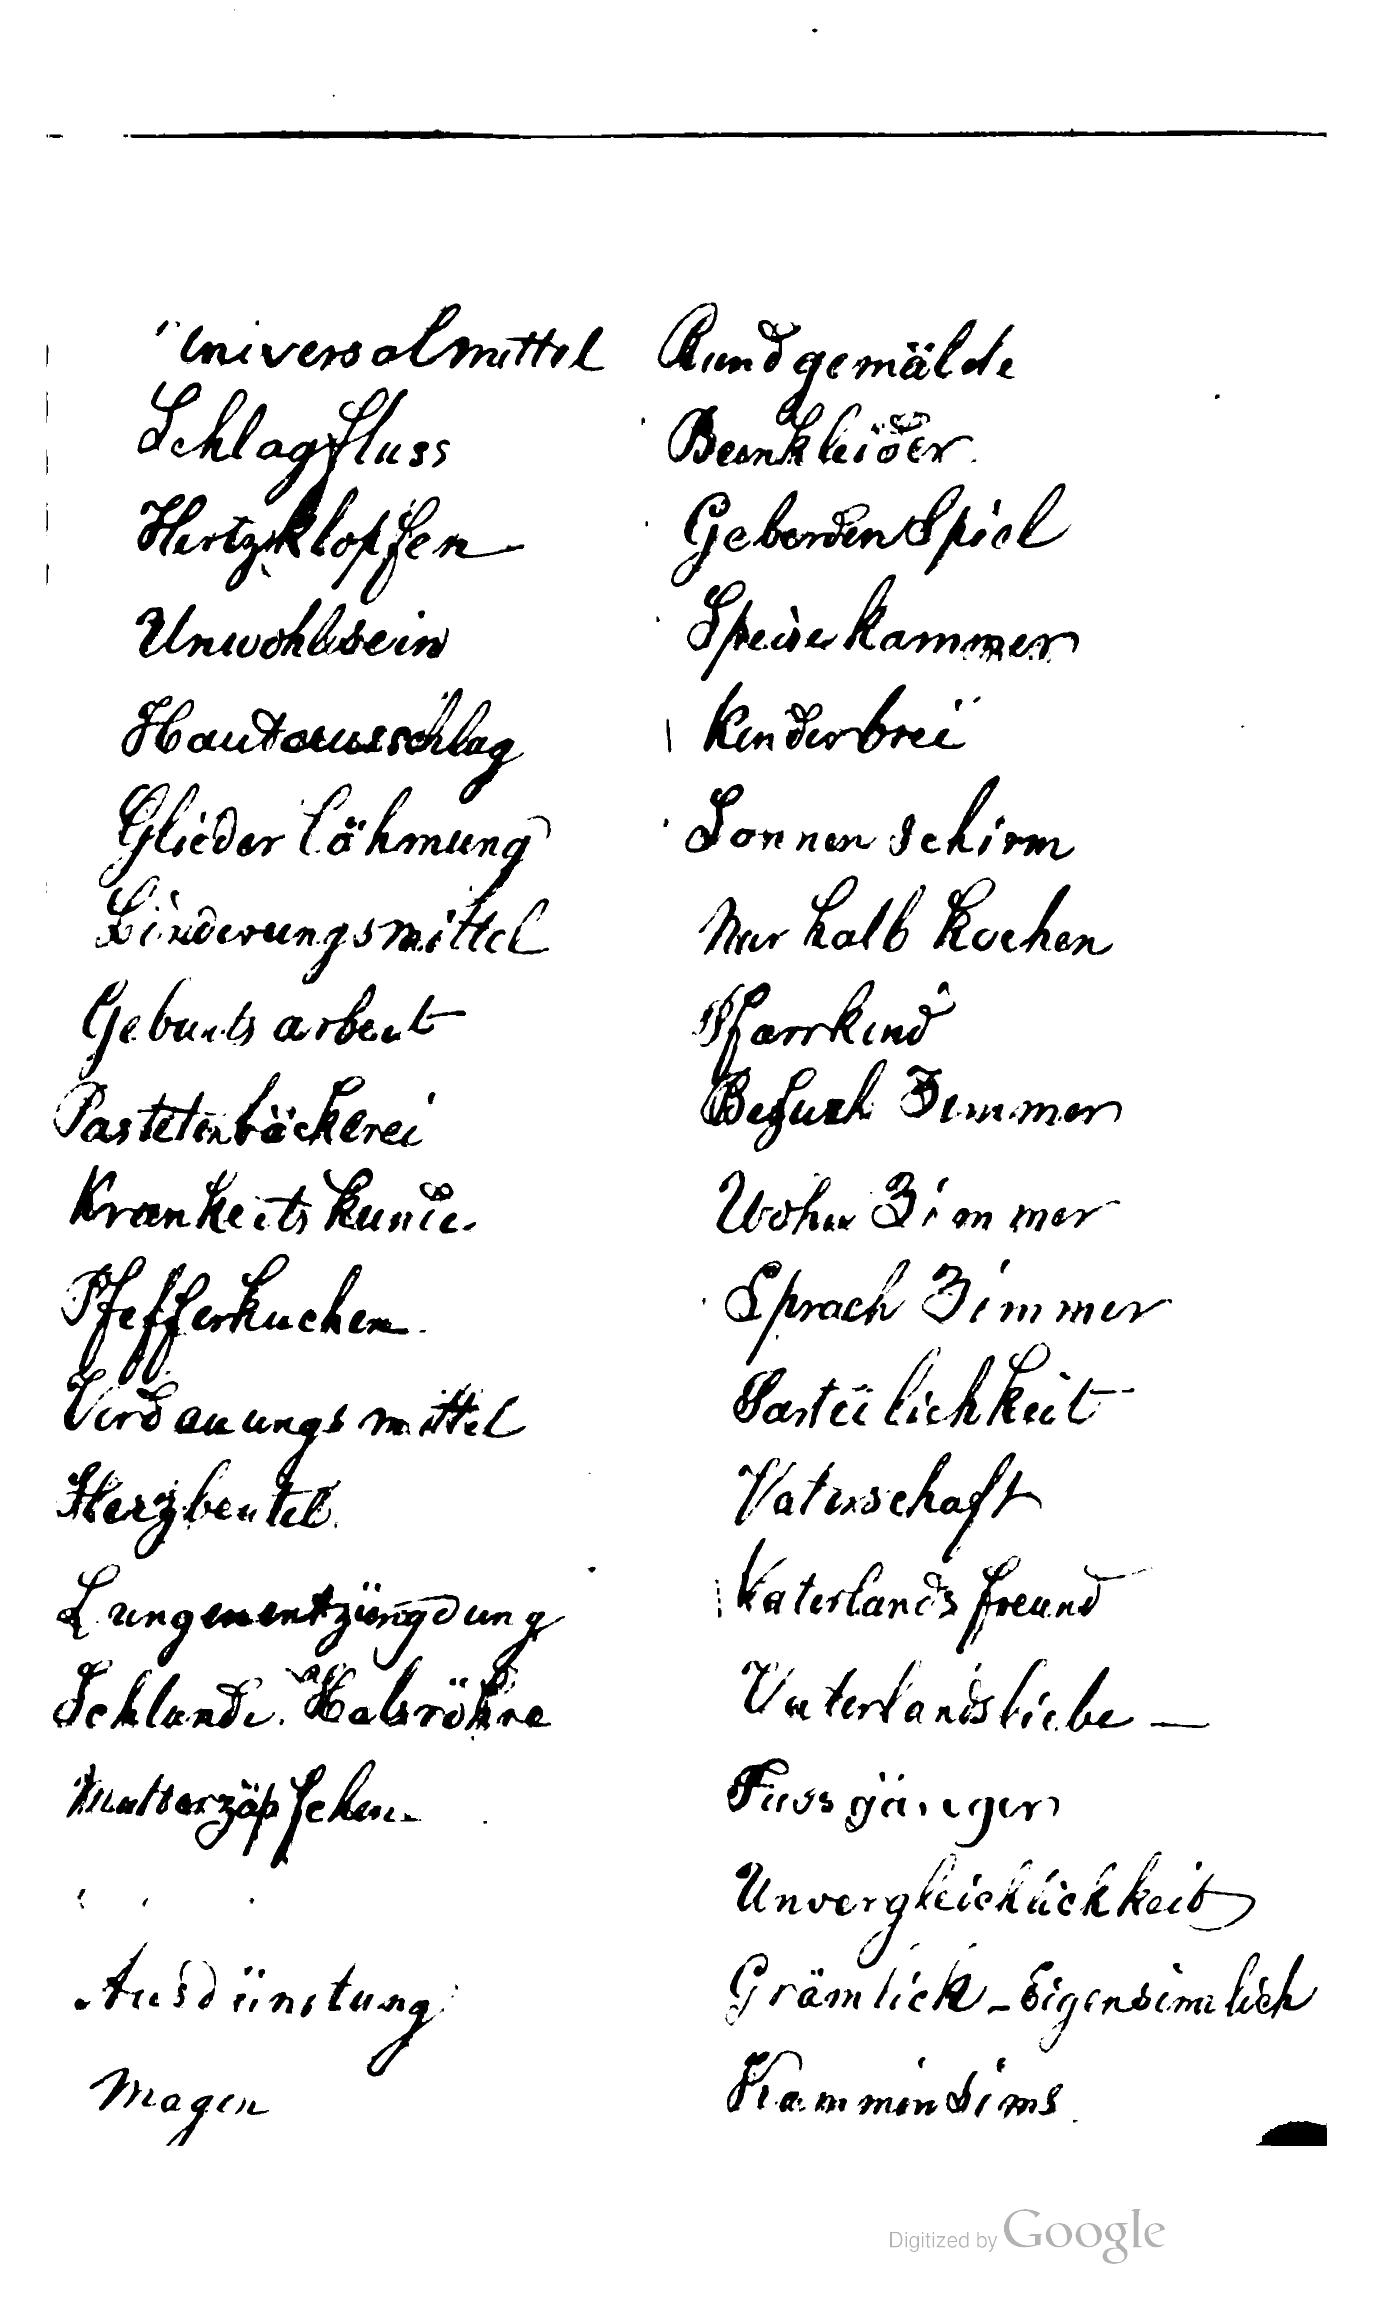 Universalmittel
Schlagfluss
Hertzklopfen
Unwohlsein
Hautausschlag
Gliederlähmung
Linderungsmittel
Geburtsarbeit
Pastetenbäckerei
Krankeitskunde
Pfefferkuchen
Verdauungsmittel
Herzbeutel.
Lungenentzüngdung
Schlunde. Halsröhre
Mutterzäpfchen
Ausdünstung
Magen
Rundgemälde
Beinkleider
GeberdenSpiel
Speisekammer
Kinderbrei
Sonnenschirm
Nur halb kochen
Pfarrkind
Besuch Zimmer
Wohn Zimmer
Sprach Zimmer
Parteilichkeit
Vaterschaft
Vaterlandsfreund
Vaterlandsliebe —
Fussgänger
Unvergleichlichkeit
Grämlich - Eigensinnlich
KamminSims.
Digitized by Google